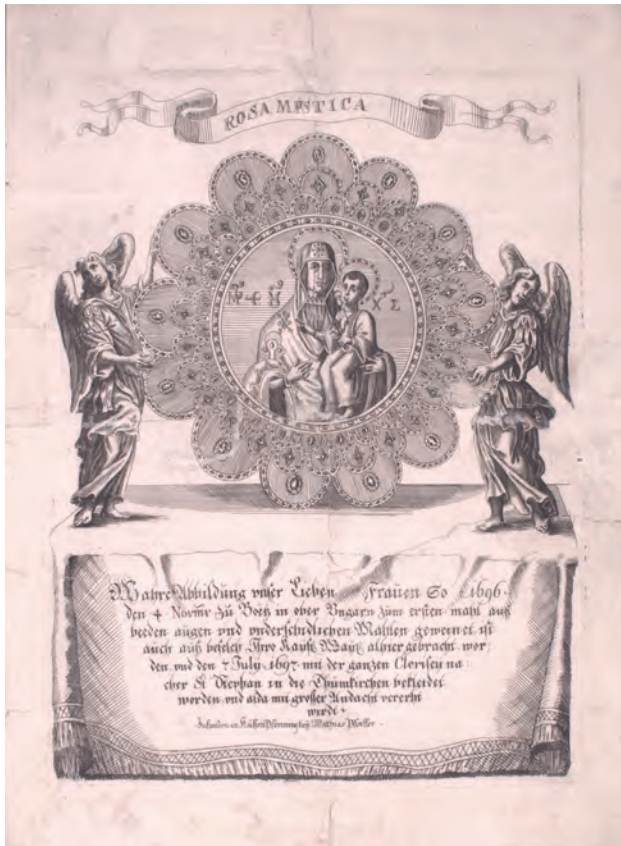 ROSA MYSTICA
Wahre Abbildung unser Lieben Frauen So 1696.
den 4 Novmr zu Boetz in ober Ungarn zum ersten mahl auß
beeden augen vnd vnderschidlichen Mahlen geweinet ist
auch auß befelch Ihro Kaÿß Maÿt alhier gebracht wor
den vnd den 7 July 1697 mit der ganzen Clerisey na
cher St Stephan in die Thumkirchen bekleidet
worden vnd alda mit grosser Andacht verehrt
wirdt
Zufinden in Mathias Pfeffer